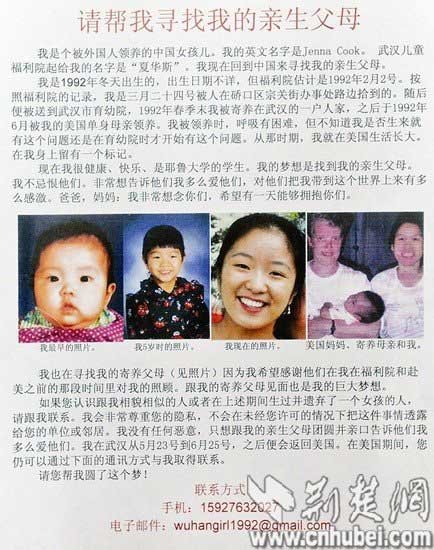 请帮我寻找我的亲生父母
我是个被外国人领养的中国女孩儿。我的英文名字是Jenna Cook。 武汉儿童
福利院起给我的名字是“夏华斯”。我现在回到中国来寻找我的亲生父母。
我是1992年冬天出生的，出生日期不详，但福利院估计是1992年2月2号。按
照福利院的记录，我是三月二十四号被人在硚口区宗关街办事处路边拾到的。随后
便被送到武汉市育幼院，1992年春季末我被寄养在武汉的一户人家，之后于1992年
6月被我的美国单身母亲领养。我被领养时，呼吸有困难，但不知道我是否生来就
有这个问题还是在育幼院时才开始有这个问题。从那时期，我就在美国生活长大。
在我身上留有一个标记。
现在我很健康、快乐、是耶鲁大学的学生。我的梦想是找到我的亲生父母。
我不忌恨他们。非常想告诉他们我多么爱他们，对他们把我带到这个世界上来有多
么感激。爸爸，妈妈：我非常想念你们，希望有一天能够拥抱你们。
我最早的照片。 我5岁时的照片。 我现在的照片。 美国妈妈、寄养母亲和我。
我也在寻找我的寄养父母（见照片）因为我希望感谢他们在我在福利院和赴
美之前的那段时间里对我的照顾。跟我的寄养父母见面也是我的巨大梦想。
如果您认识跟我相貌相似的人或者在上述期间生过并遗弃了一个女孩的人，
请跟我联系。我会非常尊重您的隐私，不会在未经您许可的情况下把这件事情透露
给您的单位或邻居。我没有任何恶意，只想跟我的亲生父母团圆并亲口告诉他们我
多么爱他们。我在武汉从5月23号到6月25号，之后便会返回美国。在美国期间，您
仍可以通过下面的通讯方式与我取得联系。
请您帮我圆了这个梦！
联系方式
手机：15927632027
电子邮件：wuhangirl1992@gmail.com
荆楚网
www.cnhubei.com